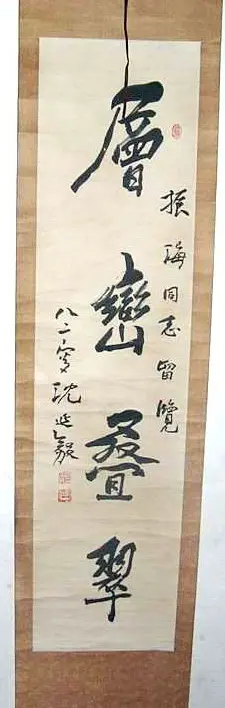 振海同志留览
層巒叠翠
八二叟沈延毅